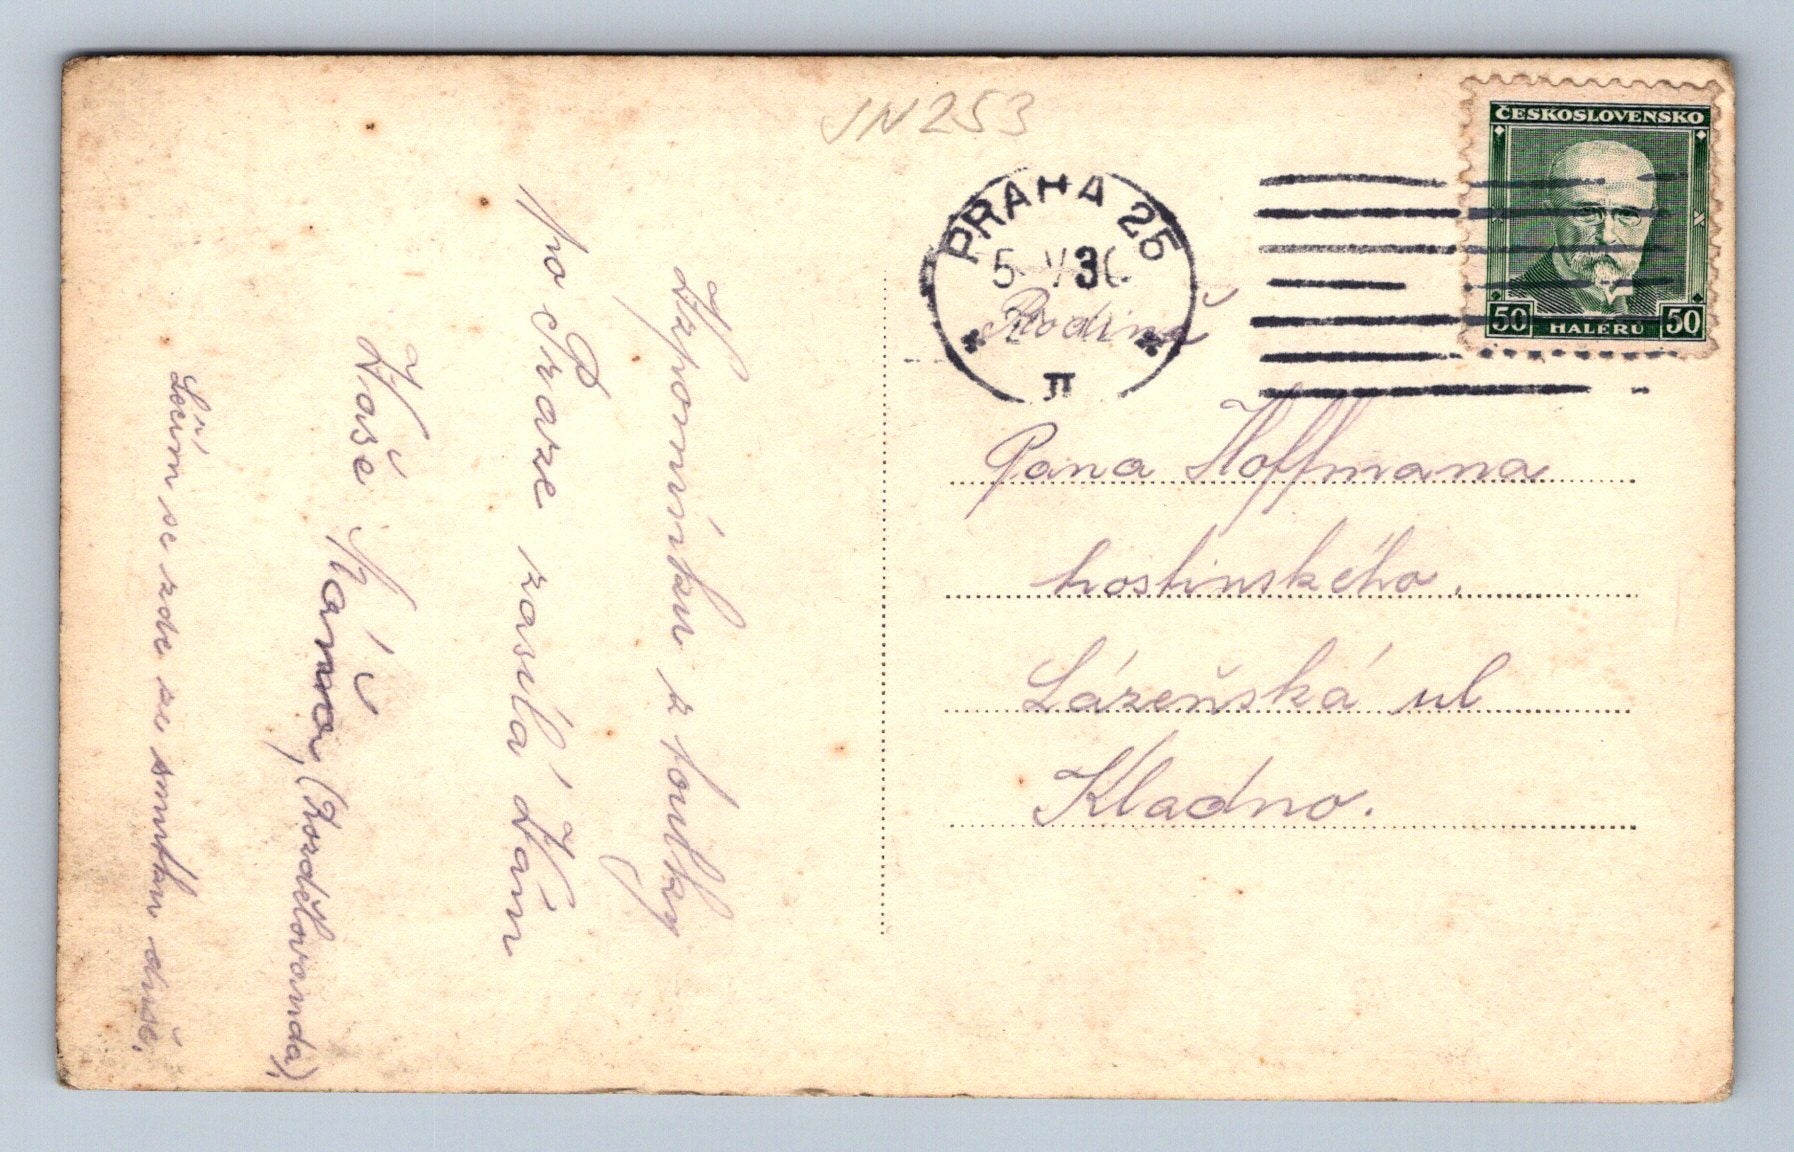 JN253
ČESKOSLOVENSKO
50 HALÉŘŮ 50
PRAHA 25
5 V 30
II
Rodině
Pana Hoffmana
hostinského.
Lázeňská ul
Kladno.
Vzpomínku z toulky
po Praze zasílá Vám
Vaše Káňa, (Kozdělovandá)
Léčím se zde ze smutku duše.